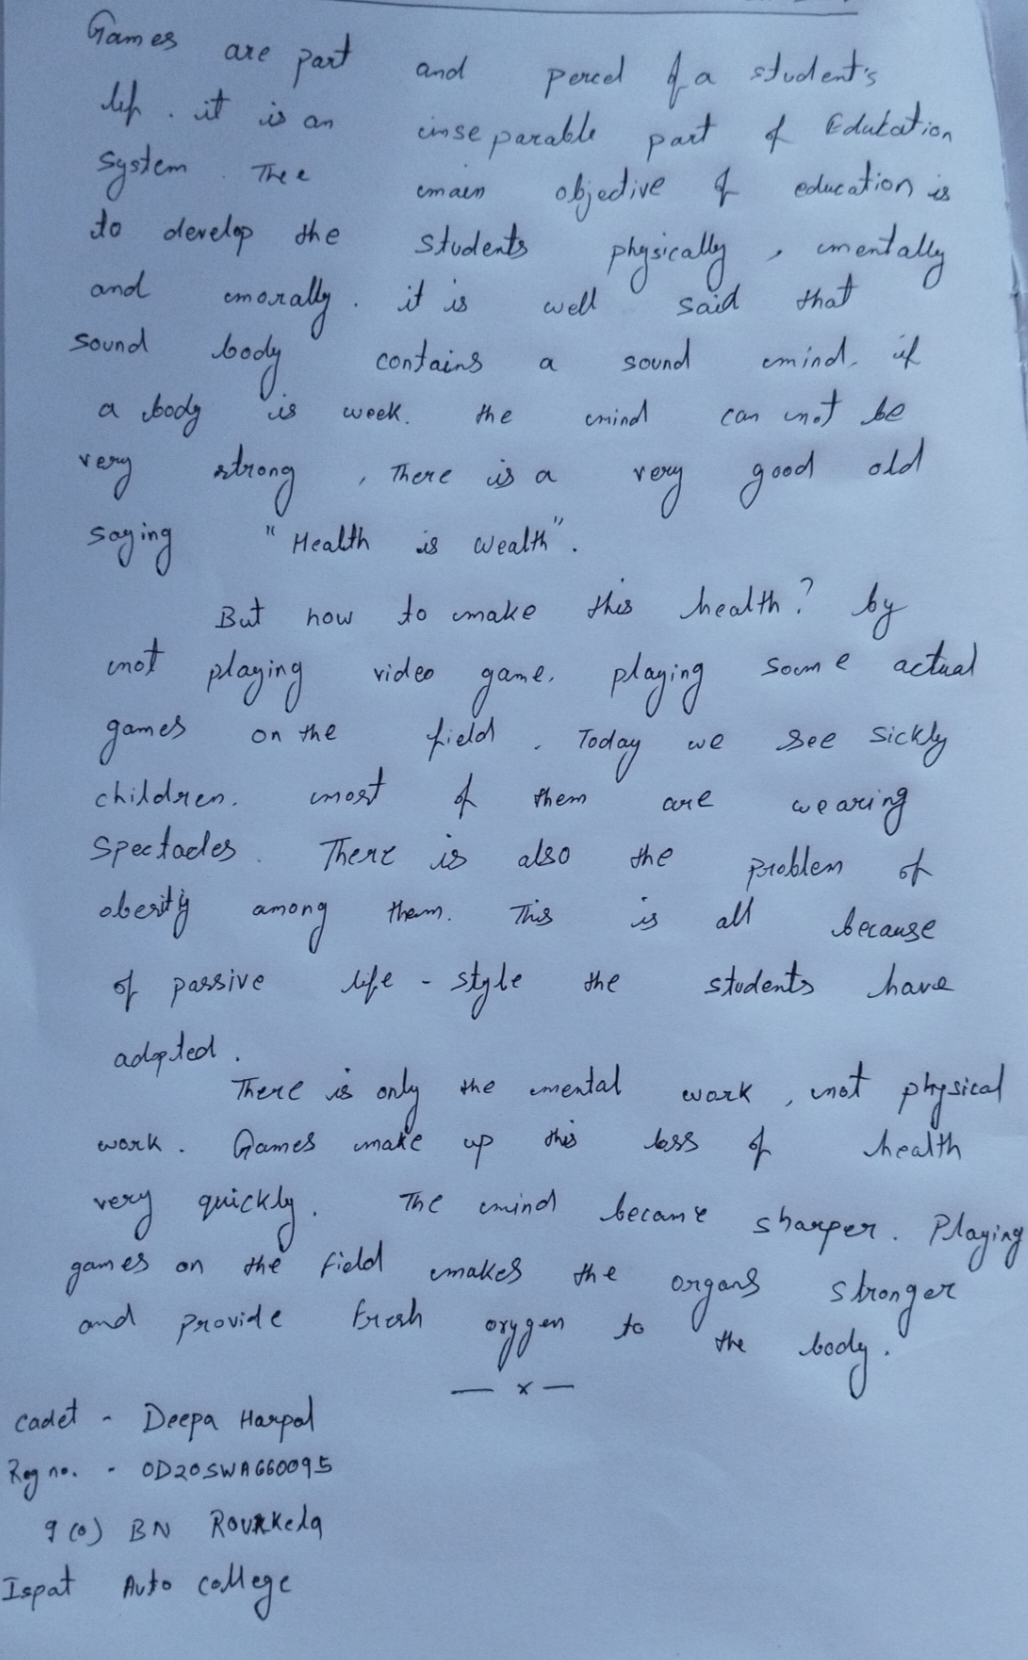 Games are part and percel of a student's
life. it is an inseparable part of Education
System. Thee main objective of education is
to develop the students physically, mentally
and morally. it is well said that
sound body contains a sound mind. if
a body is week. the mind can not be
very strong, There is a very good old
saying "Health is wealth".
But how to make this health? by
not playing video game. playing soome actual
games on the field. Today we see sickly
children. most of them are wearing
Spectacles. There is also the problem of
obesity among them. This is all because
of passive life-style the students have
adopted.
There is only the mental work, not physical
work. Games make up this loss of health
very quickly. The mind became sharper. Playing
games on the field makes the organs stronger
and provide fresh oxygen to the body.
— x —
Cadet - Deepa Harpal
Reg no. - OD20SWA660095
9(O) BN Rourkela
Ispat Auto college